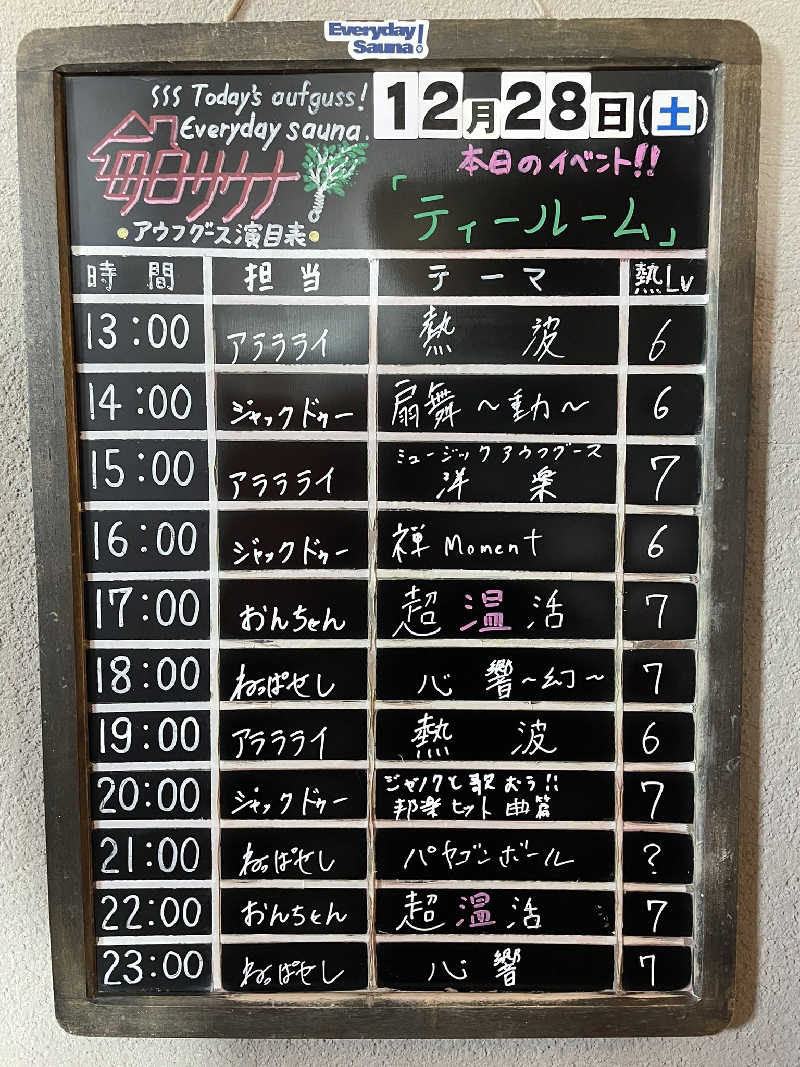 Everyday
Sauna!
Today's aufguss!
Everyday sauna.
毎日サウナ
アウフグース演目表
12月28日(土)
本日のイベント!!
「ティールーム」
時間 担当 テーマ 熱Lv
13:00 アララライ 熱波 6
14:00 ジャックドゥー 扇舞~動~ 6
15:00 アララライ ミュージックアウフグース 洋楽 7
16:00 ジャックドゥー 禅 Moment 6
17:00 おんちゃん 超温活 7
18:00 ねっぱせし 心響~幻~ 7
19:00 アララライ 熱波 6
20:00 ジャックドゥー ジャックと歌おう!! 邦楽ヒット曲篇 7
21:00 ねっぱせし パヤゴンボール ?
22:00 おんちゃん 超温活 7
23:00 ねっぱせし 心響 7